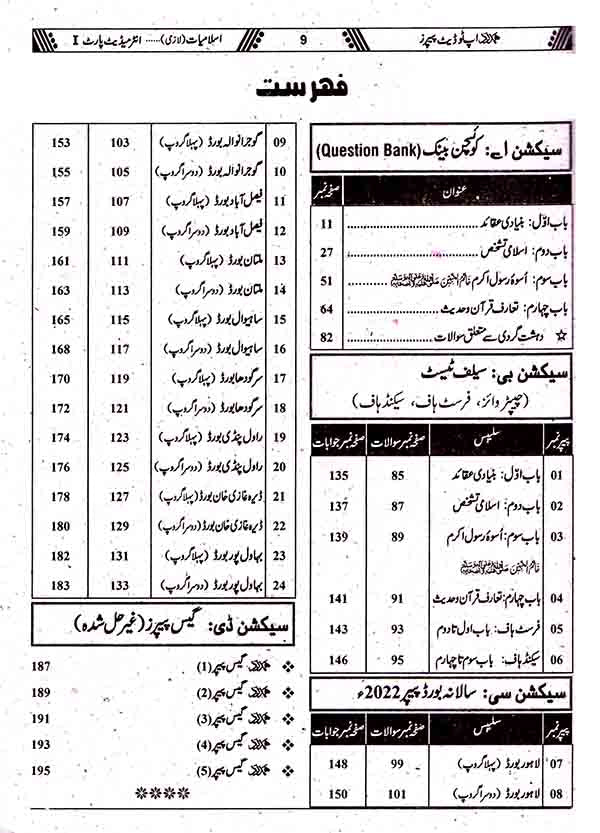 اسلامیات (لازمی)..... انٹرمیڈیٹ پارٹ I
9
اپ ٹو ڈیٹ پیپرز
فہرست
سیکشن اے: کوئسچن بینک (Question Bank)
عنوان صفحہ نمبر
باب اوّل: بنیادی عقائد 11
باب دوم: اسلامی تشخص 27
باب سوم: اُسوۂ رسول اکرم 51
باب چہارم: تعارف قرآن و حدیث 64
☆ دہشت گردی سے متعلق سوالات 82
سیکشن بی: سیلف ٹیسٹ
(چیپٹر وائز، فرسٹ ہاف، سیکنڈ ہاف)
پیپر نمبر سلیبس صفحہ نمبر سوالات صفحہ نمبر جوابات
01 باب اوّل: بنیادی عقائد 85 135
02 باب دوم: اسلامی تشخص 87 137
03 باب سوم: اُسوۂ رسول اکرم 89 139
04 باب چہارم: تعارف قرآن و حدیث 91 141
05 فرسٹ ہاف: باب اول تا دوم 93 143
06 سیکنڈ ہاف: باب سوم تا چہارم 95 146
سیکشن سی: سالانہ بورڈ پیپر 2022ء
پیپر نمبر سلیبس صفحہ نمبر سوالات صفحہ نمبر جوابات
07 لاہور بورڈ (پہلا گروپ) 99 148
08 لاہور بورڈ (دوسرا گروپ) 101 150
09 گوجرانوالہ بورڈ (پہلا گروپ) 103 153
10 گوجرانوالہ بورڈ (دوسرا گروپ) 105 155
11 فیصل آباد بورڈ (پہلا گروپ) 107 157
12 فیصل آباد بورڈ (دوسرا گروپ) 109 159
13 ملتان بورڈ (پہلا گروپ) 111 161
14 ملتان بورڈ (دوسرا گروپ) 113 163
15 ساہیوال بورڈ (پہلا گروپ) 115 165
16 ساہیوال بورڈ (دوسرا گروپ) 117 168
17 سرگودھا بورڈ (پہلا گروپ) 119 170
18 سرگودھا بورڈ (دوسرا گروپ) 121 172
19 راولپنڈی بورڈ (پہلا گروپ) 123 174
20 راولپنڈی بورڈ (دوسرا گروپ) 125 176
21 ڈیرہ غازی خان بورڈ (پہلا گروپ) 127 178
22 ڈیرہ غازی خان بورڈ (دوسرا گروپ) 129 180
23 بہاول پور بورڈ (پہلا گروپ) 131 182
24 بہاول پور بورڈ (دوسرا گروپ) 133 183
سیکشن ڈی: گیس پیپرز (غیر حل شدہ)
گیس پیپر (1) 187
گیس پیپر (2) 189
گیس پیپر (3) 191
گیس پیپر (4) 193
گیس پیپر (5) 195